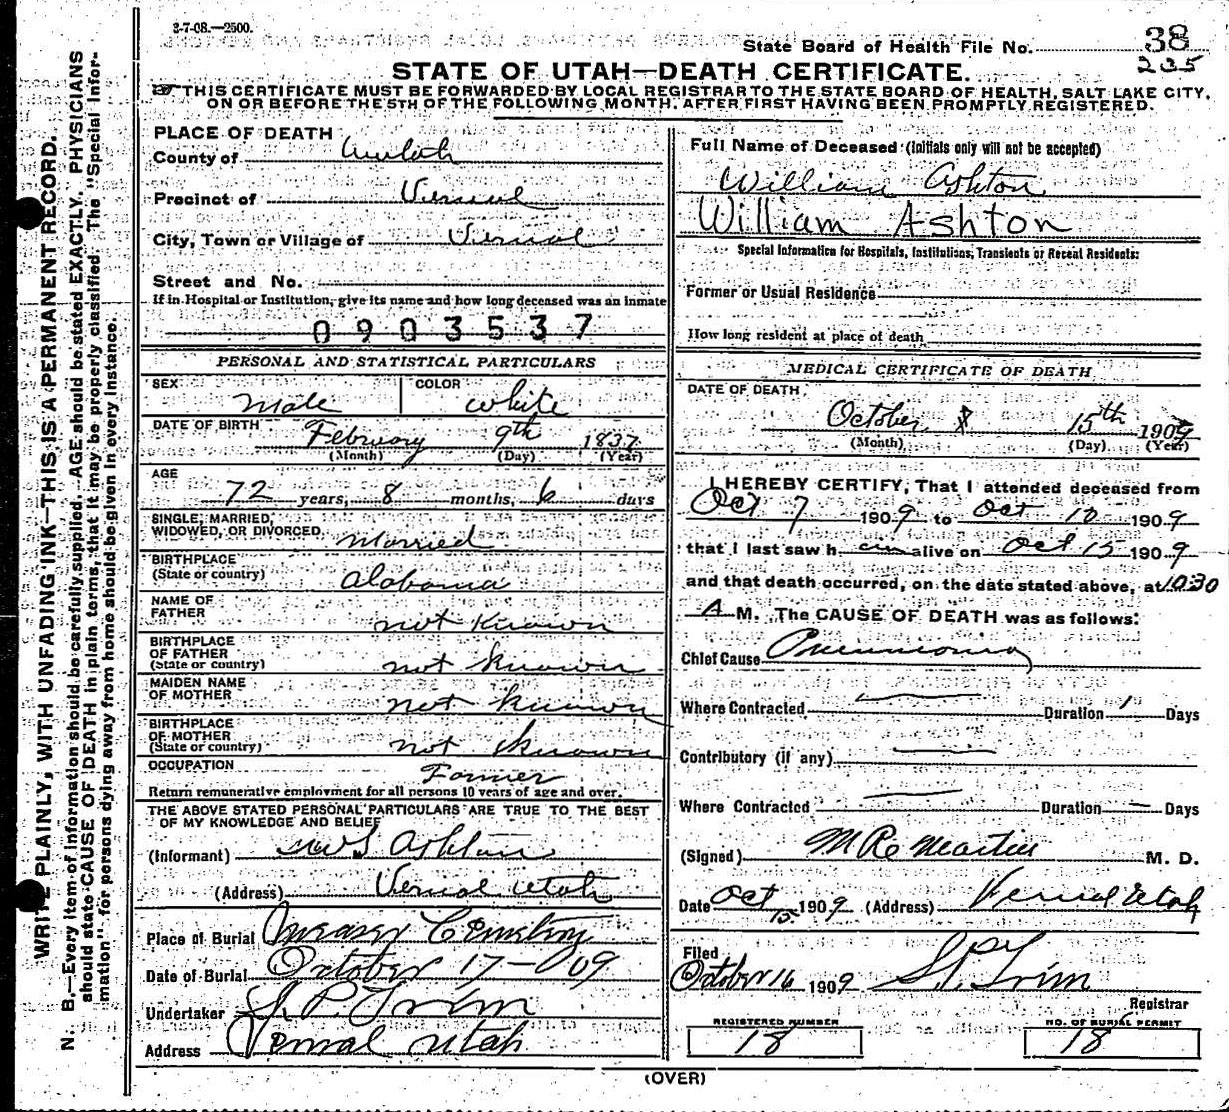 3-7-08.—2500.
State Board of Health File No. 38
235
STATE OF UTAH—DEATH CERTIFICATE.
THIS CERTIFICATE MUST BE FORWARDED BY LOCAL REGISTRAR TO THE STATE BOARD OF HEALTH, SALT LAKE CITY,
ON OR BEFORE THE 5TH OF THE FOLLOWING MONTH, AFTER FIRST HAVING BEEN PROMPTLY REGISTERED.
WRITE PLAINLY, WITH UNFADING INK—THIS IS A PERMANENT RECORD.
N. B.—Every item of information should be carefully supplied. AGE should be stated EXACTLY. PHYSICIANS
should state CAUSE OF DEATH in plain terms, that it may be properly classified. The "Special Infor-
mation" for persons dying away from home should be given in every instance.
PLACE OF DEATH
County of
Precinct of Vernal
City, Town or Village of Vernal
Street and No.
If in Hospital or Institution, give its name and how long deceased was an inmate
0903537
PERSONAL AND STATISTICAL PARTICULARS
SEX COLOR
Male White
DATE OF BIRTH February 9th 1837
(Month) (Day) (Year)
AGE
72 years, 8 months, 6 days
SINGLE, MARRIED,
WIDOWED, OR DIVORCED Married
BIRTHPLACE
(State or country) Alabama
NAME OF
FATHER not Known
BIRTHPLACE
OF FATHER
(State or country) not known
MAIDEN NAME
OF MOTHER not known
BIRTHPLACE
OF MOTHER
(State or country) not known
OCCUPATION Farmer
Return remunerative employment for all persons 10 years of age and over.
THE ABOVE STATED PERSONAL PARTICULARS ARE TRUE TO THE BEST
OF MY KNOWLEDGE AND BELIEF
(Informant) Ashton
(Address) Vernal Utah
Place of Burial Cemetery
Date of Burial October 17-09
Undertaker S. P. Trim
Address Vernal Utah
Full Name of Deceased (Initials only will not be accepted)
William Ashton
William Ashton
Special Information for Hospitals, Institutions, Transients or Recent Residents:
Former or Usual Residence
How long resident at place of death
MEDICAL CERTIFICATE OF DEATH
DATE OF DEATH
October 15th 1909
(Month) (Day) (Year)
I HEREBY CERTIFY, That I attended deceased from
Oct 7 1909 to Oct 10 1909
that I last saw h im alive on Oct 15 1909
and that death occurred, on the date stated above, at 10:30
A M. The CAUSE OF DEATH was as follows:
Chief Cause Pneumonia
Where Contracted Duration 1 Days
Contributory (if any)
Where Contracted Duration — Days
(Signed) M. D.
Date Oct 15 1909 (Address) Vernal Utah
Filed
October 16 1909 S. P. Trim
Registrar
REGISTERED NUMBER NO. OF BURIAL PERMIT
18 18
(OVER)